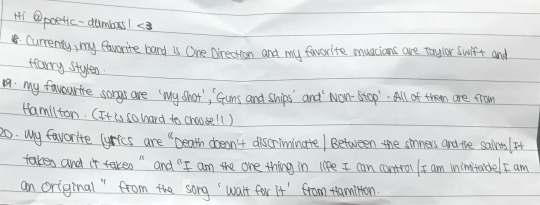 Hi @poetic-dumbass! <3
8. Currently, my favorite band is One Direction and my favorite musicians are Taylor Swift and
Harry Styles.
19. My favourite songs are 'My Shot', 'Guns and Ships' and 'Non-Stop'. All of them are from
Hamilton. (It is so hard to choose!!)
20. My favorite lyrics are "Death doesn't discriminate / Between the sinners and the saints / It
takes and it takes" and "I am the one thing in life I can control / I am inimitable / I am
an original" from the song 'Wait for it' from Hamilton.